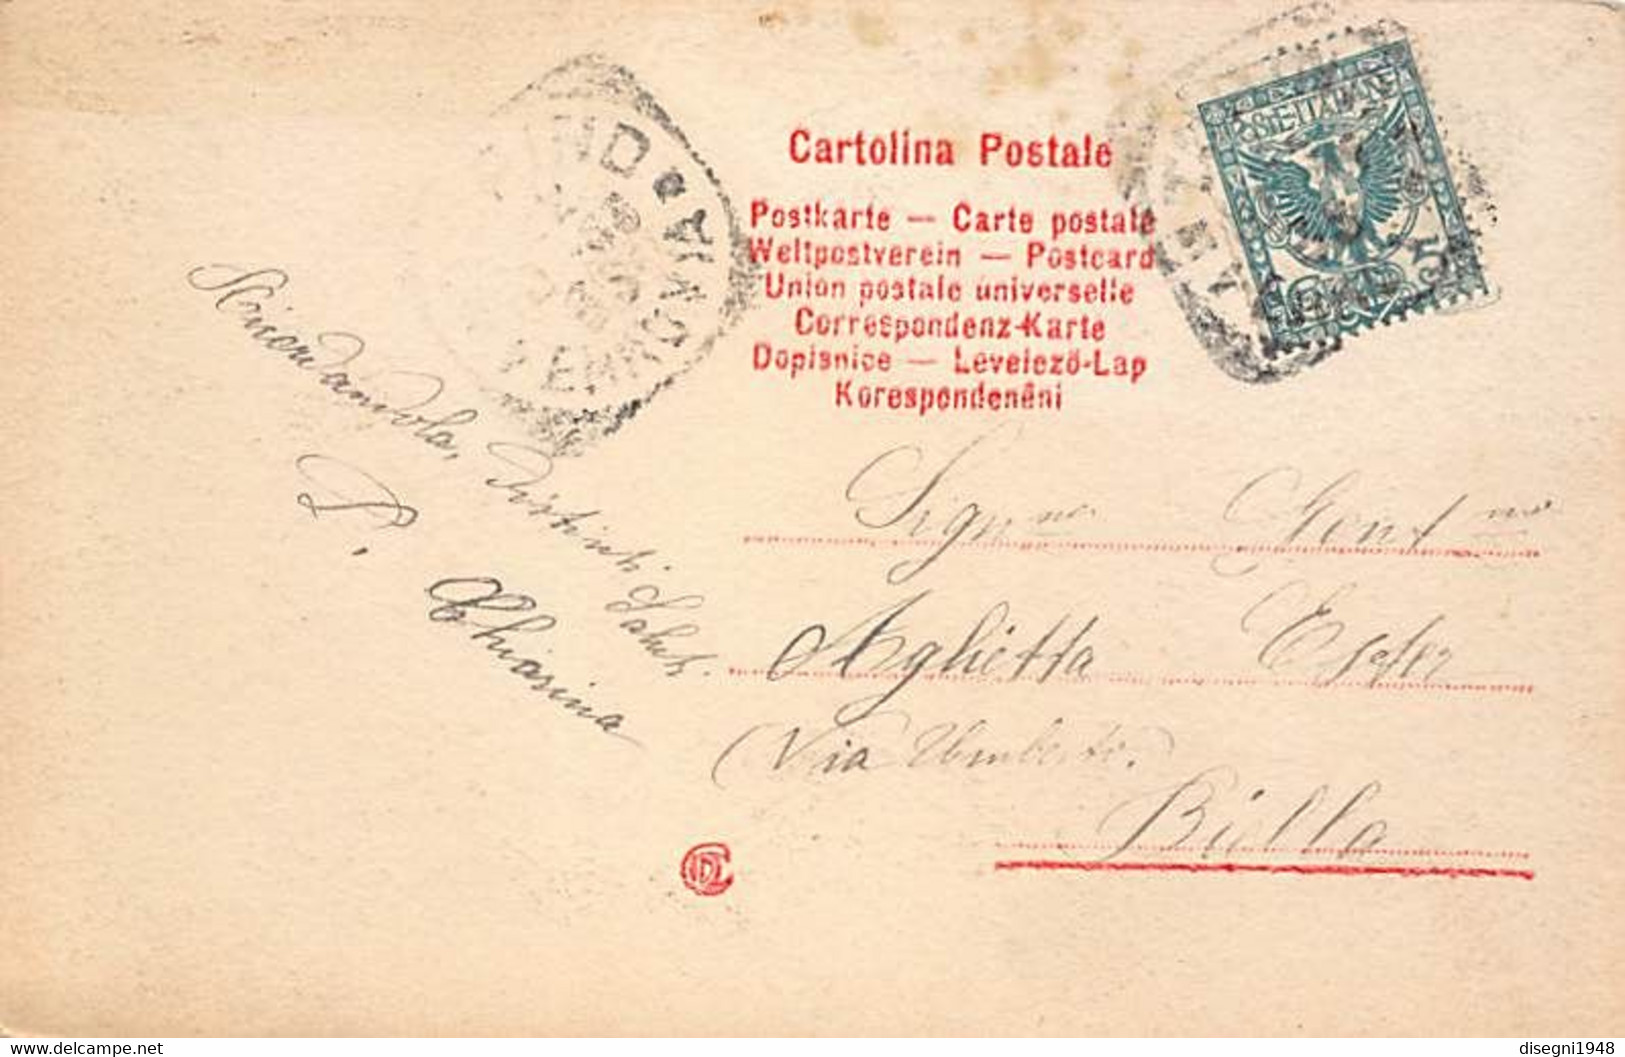 Cartolina Postale
Postkarte — Carte postale
Weltpostverein — Postcard
Union postale universelle
Correspondenz-Karte
Dopisnice — Levelező-Lap
Korespondenêni
POSTE·ITALIANE
5
FERROVIA
Distinti Saluti.
Chiarina
Sign.na Gent.ma
Aglietta Ester
Via Umberto.
Biella
delcampe.net
disegni1948